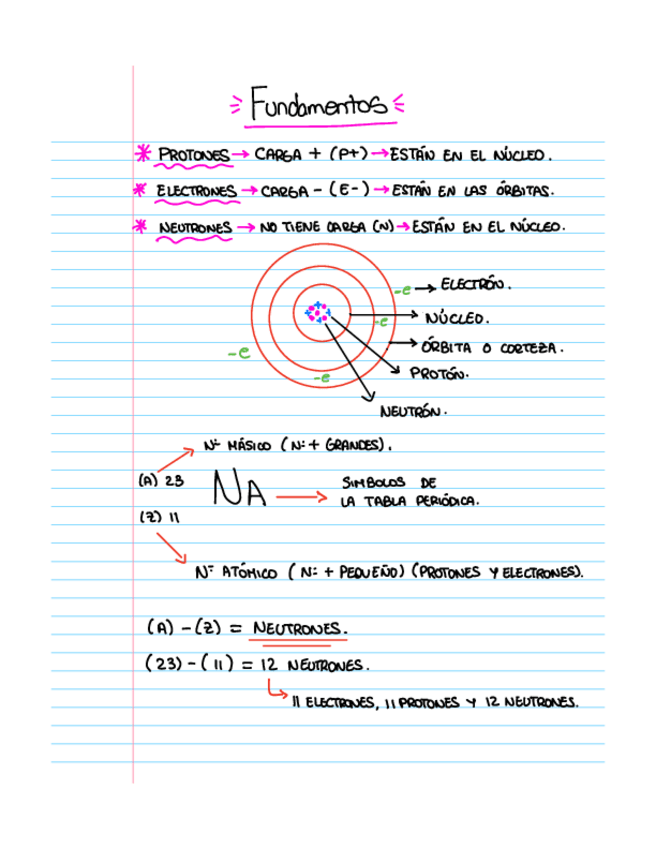 Fundamentos
* PROTONES → CARGA + (P+) → ESTÁN EN EL NÚCLEO.
* ELECTRONES → CARGA - (E-) → ESTÁN EN LAS ÓRBITAS.
* NEUTRONES → NO TIENE CARGA (N) → ESTÁN EN EL NÚCLEO.
-e → ELECTRÓN.
NÚCLEO.
-e
ÓRBITA O CORTEZA.
-e
PROTÓN.
-e
NEUTRÓN.
Nº MÁSICO (Nº + GRANDES).
(A) 23
NA → SIMBOLOS DE
LA TABLA PERIÓDICA.
(Z) 11
Nº ATÓMICO (Nº + PEQUEÑO) (PROTONES Y ELECTRONES).
(A) - (Z) = NEUTRONES.
(23) - (11) = 12 NEUTRONES.
11 ELECTRONES, 11 PROTONES Y 12 NEUTRONES.